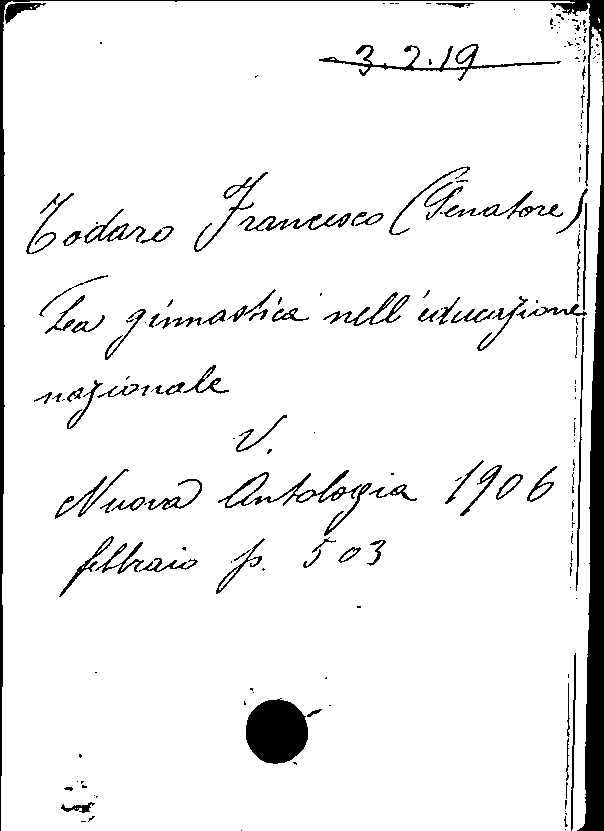 3.2.19
Todaro Francesco (Senatore)
La ginnastica nell'educazione
nazionale
V.
Nuova Antologia 1906
febbraio p. 503